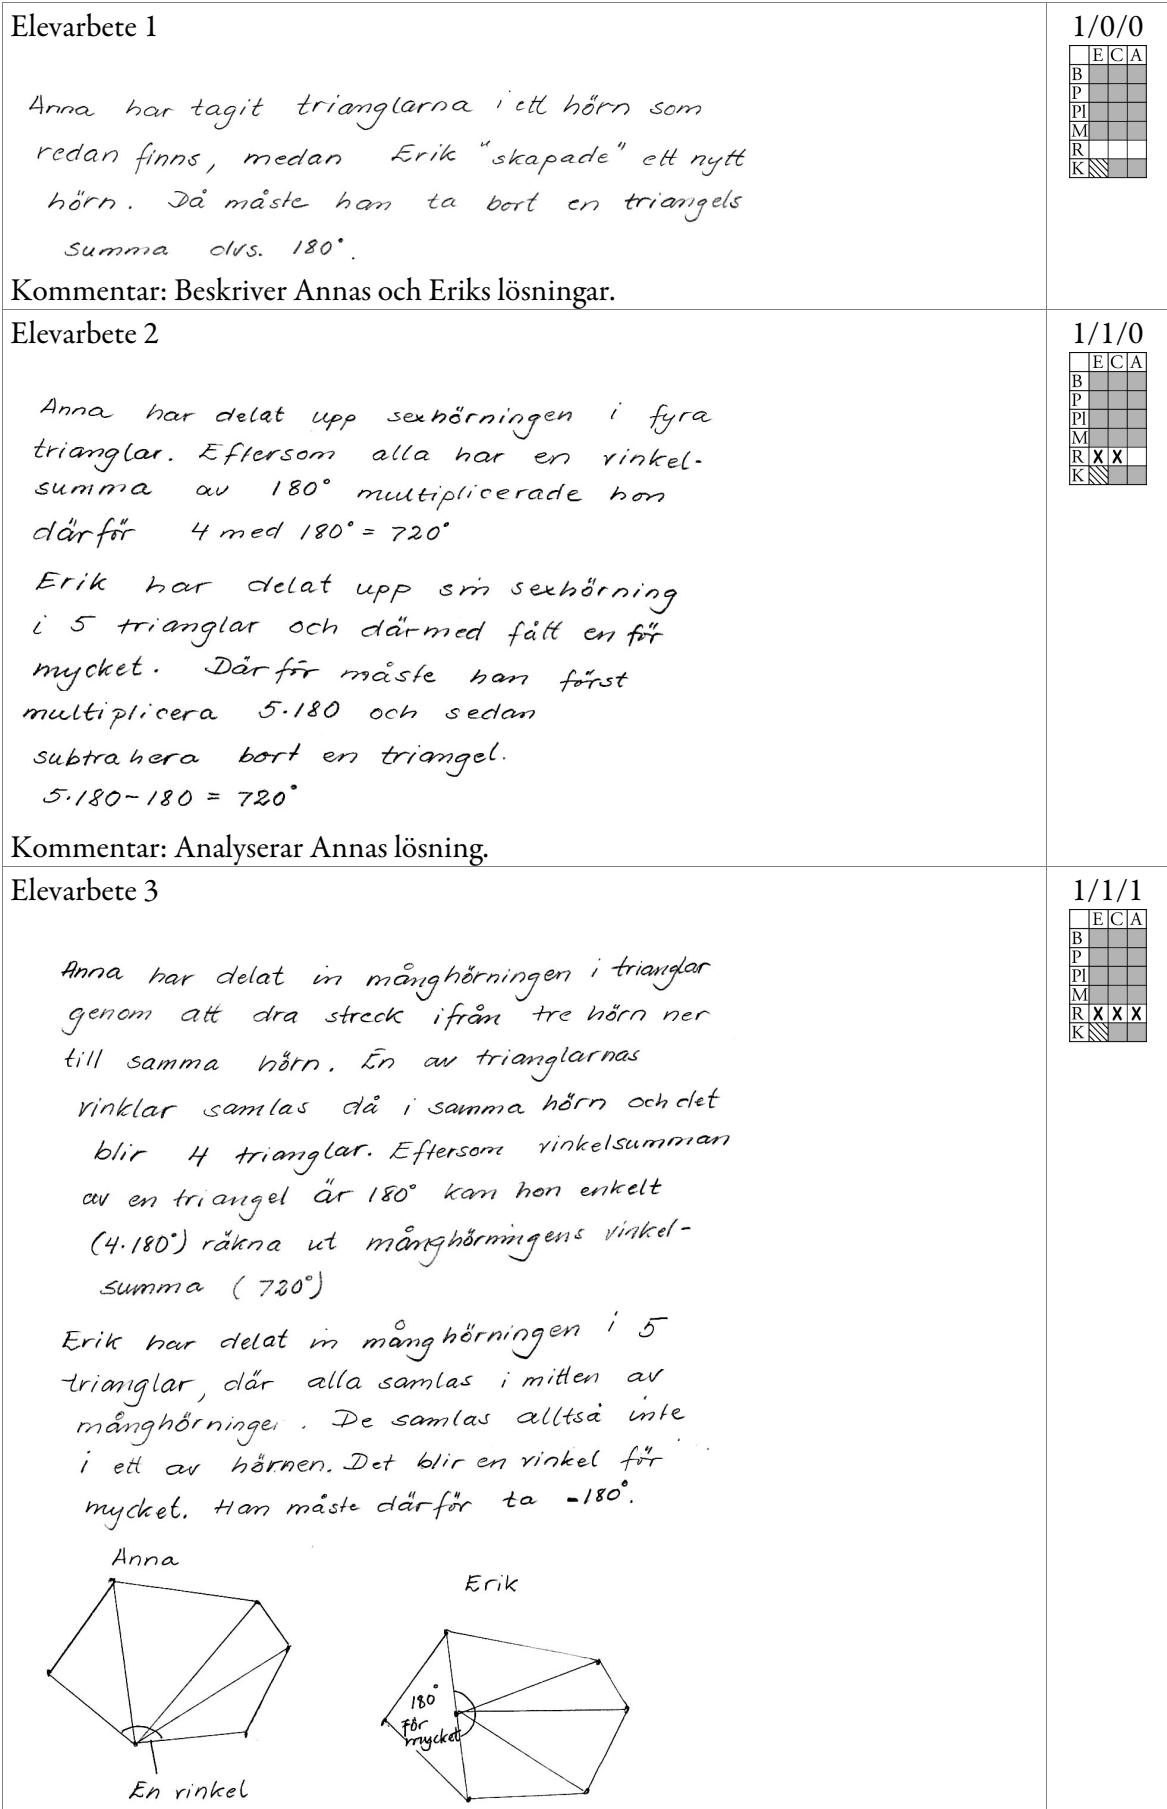 Elevarbete 1
1/0/0
E C A
B
P
Pl
M
R
K
Anna har tagit trianglarna i ett hörn som
redan finns, medan Erik "skapade" ett nytt
hörn. Då måste han ta bort en triangels
summa dvs. 180°.
Kommentar: Beskriver Annas och Eriks lösningar.
Elevarbete 2
1/1/0
E C A
B
P
Pl
M
R X X
K
Anna har delat upp sexhörningen i fyra
trianglar. Eftersom alla har en vinkel-
summa av 180° multiplicerade hon
därför 4 med 180° = 720°
Erik har delat upp sin sexhörning
i 5 trianglar och därmed fått en för
mycket. Därför måste han först
multiplicera 5·180 och sedan
subtrahera bort en triangel.
5·180-180 = 720°
Kommentar: Analyserar Annas lösning.
Elevarbete 3
1/1/1
E C A
B
P
Pl
M
R X X X
K
Anna har delat in månghörningen i trianglar
genom att dra streck ifrån tre hörn ner
till samma hörn. En av trianglarnas
vinklar samlas då i samma hörn och det
blir 4 trianglar. Eftersom vinkelsumman
av en triangel är 180° kan hon enkelt
(4·180°) räkna ut månghörningens vinkel-
summa (720°)
Erik har delat in månghörningen i 5
trianglar, där alla samlas i mitten av
månghörninge. De samlas alltså inte
i ett av hörnen. Det blir en vinkel för
mycket. Han måste därför ta -180°.
Anna
Erik
180°
för
mycket
En vinkel